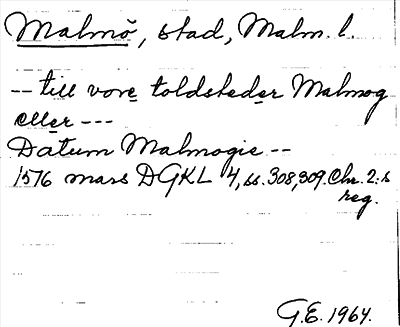 Malmö, stad, Malm. l.
-- till vore toldsteder Malmog
eller ---
Datum Malmogie --
1576 mars DGKL 4, ss. 308, 309. Chr. 2:s
reg.
G.E. 1964.